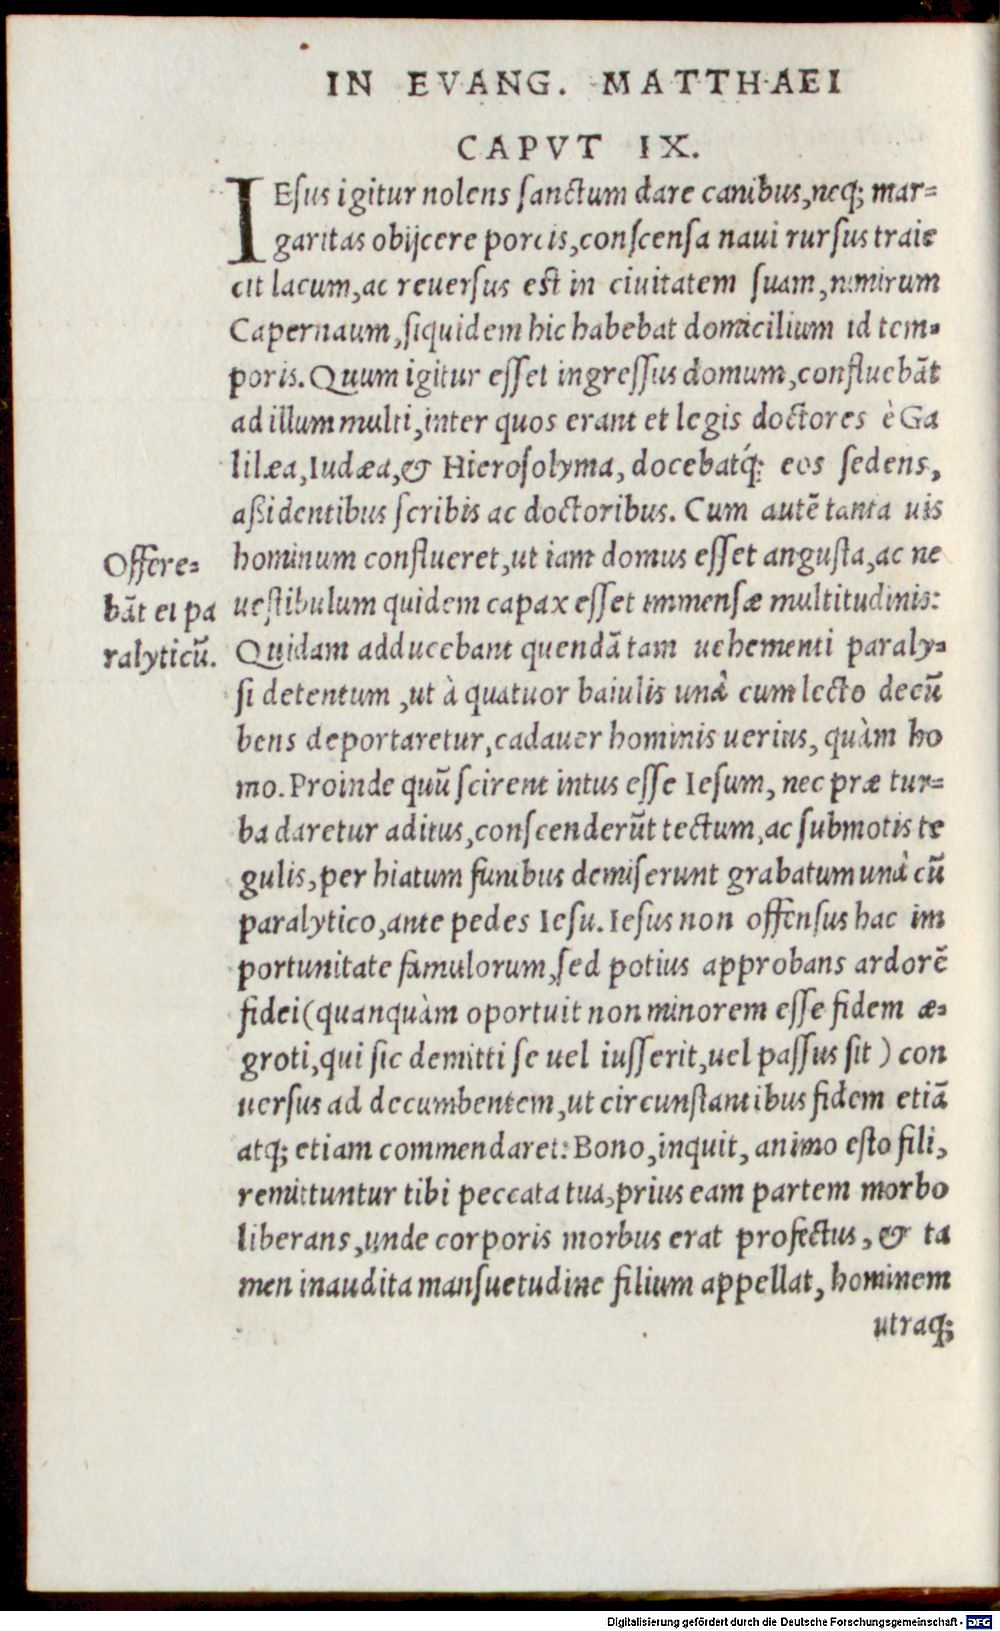 IN EVANG. MATTHAEI
CAPVT IX.
IEsus igitur nolens sanctum dare canibus, neq; mar=
garitas obijcere porcis, conscensa naui rursus traie
cit lacum, ac reuersus est in ciuitatem suam, nimirum
Capernaum, siquidem hic habebat domicilium id tem=
poris. Quum igitur esset ingressus domum, confluebāt
ad illum multi, inter quos erant et legis doctores è Ga
lilæa, Iudæa, & Hierosolyma, docebatq́; eos sedens,
aßidentibus scribis ac doctoribus. Cum autē tanta uis
hominum conflueret, ut iam domus esset angusta, ac ne
uestibulum quidem capax esset immensæ multitudinis:
Quidam adducebant quendā tam uehementi paraly=
si detentum, ut à quatuor baiulis unà cum lecto decū
bens deportaretur, cadauer hominis uerius, quàm ho
mo. Proinde quū scirent intus esse Iesum, nec præ tur=
ba daretur aditus, conscenderūt tectum, ac submotis te
gulis, per hiatum funibus demiserunt grabatum unà cū
paralytico, ante pedes Iesu. Iesus non offensus hac im
portunitate famulorum, sed potius approbans ardorē
fidei (quanquàm oportuit non minorem esse fidem æ=
groti, qui sic demitti se uel iusserit, uel passus sit) con
uersus ad decumbentem, ut circunstantibus fidem etiā
atq; etiam commendaret: Bono, inquit, animo esto fili,
remittuntur tibi peccata tua, prius eam partem morbo
liberans, unde corporis morbus erat profectus, & ta
men inaudita mansuetudine filium appellat, hominem
utraq;
Offere=
bāt ei pa
ralyticū.
Digitalisierung gefördert durch die Deutsche Forschungsgemeinschaft - DFG